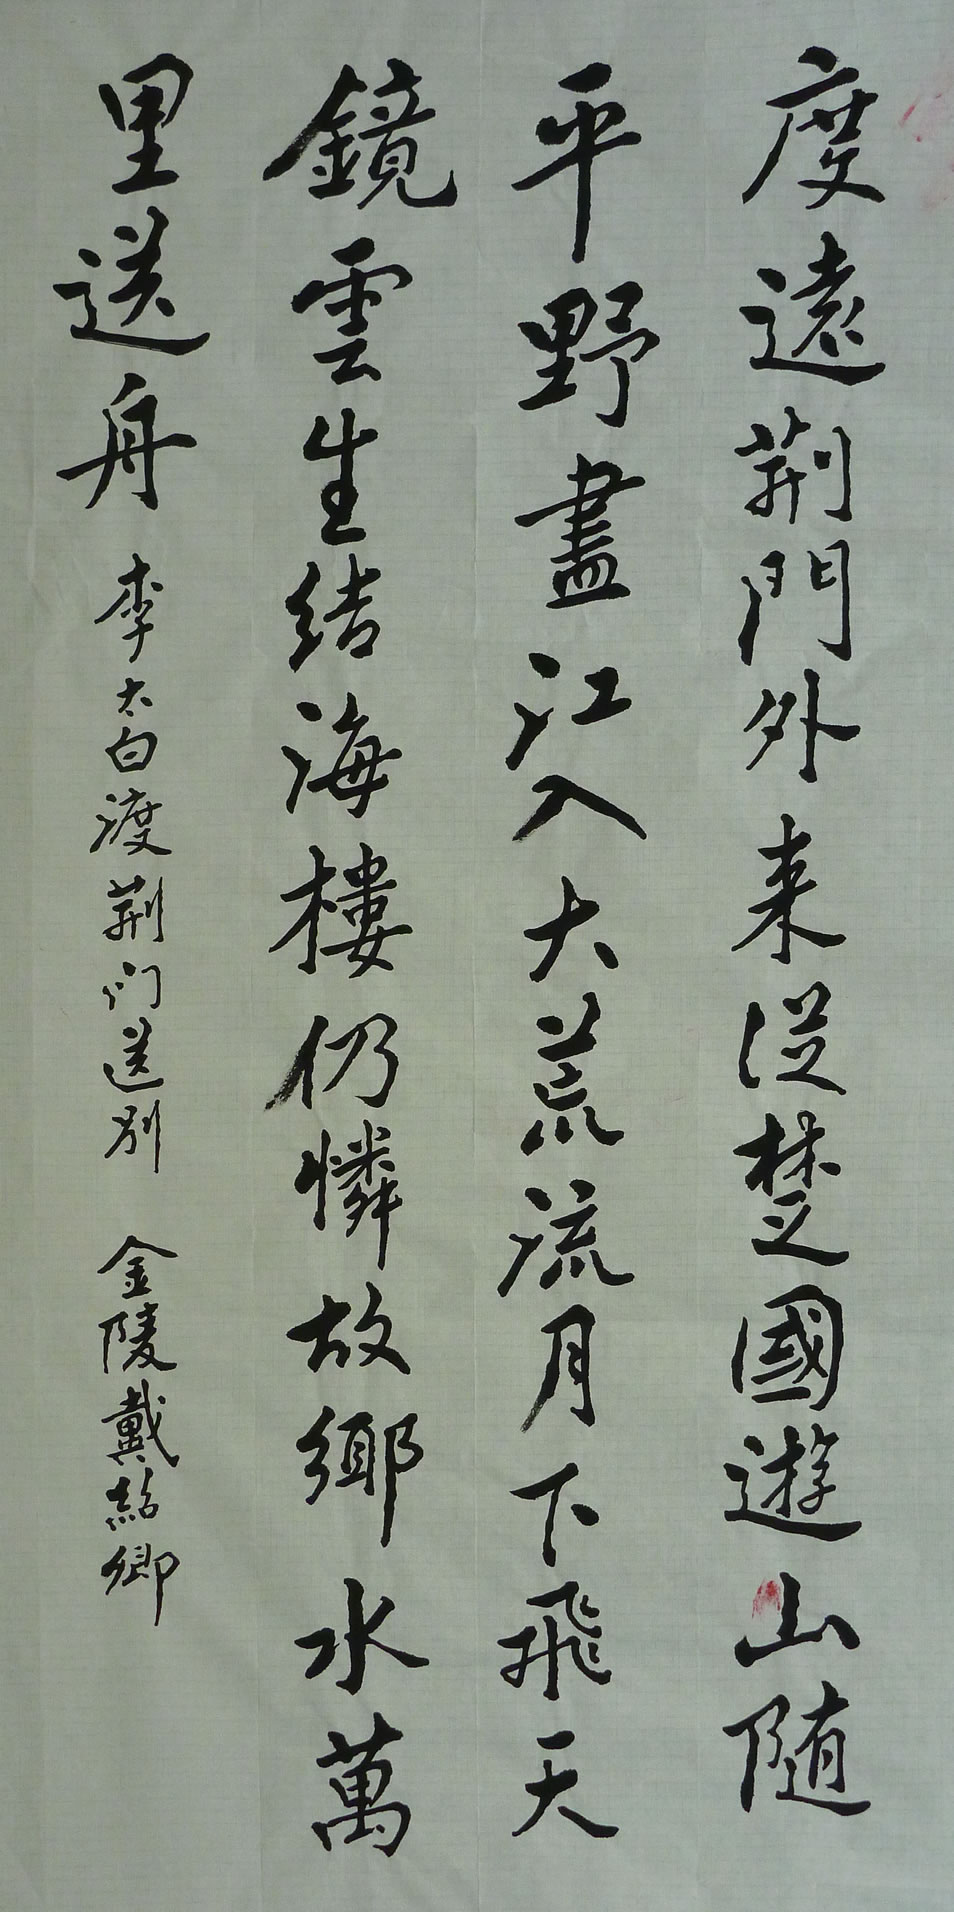 度遠荆門外来從楚國遊山随
平野盡江入大荒流月下飛天
鏡雲生结海樓仍憐故鄉水萬
里送舟
李太白渡荆门送别
金陵戴紹卿